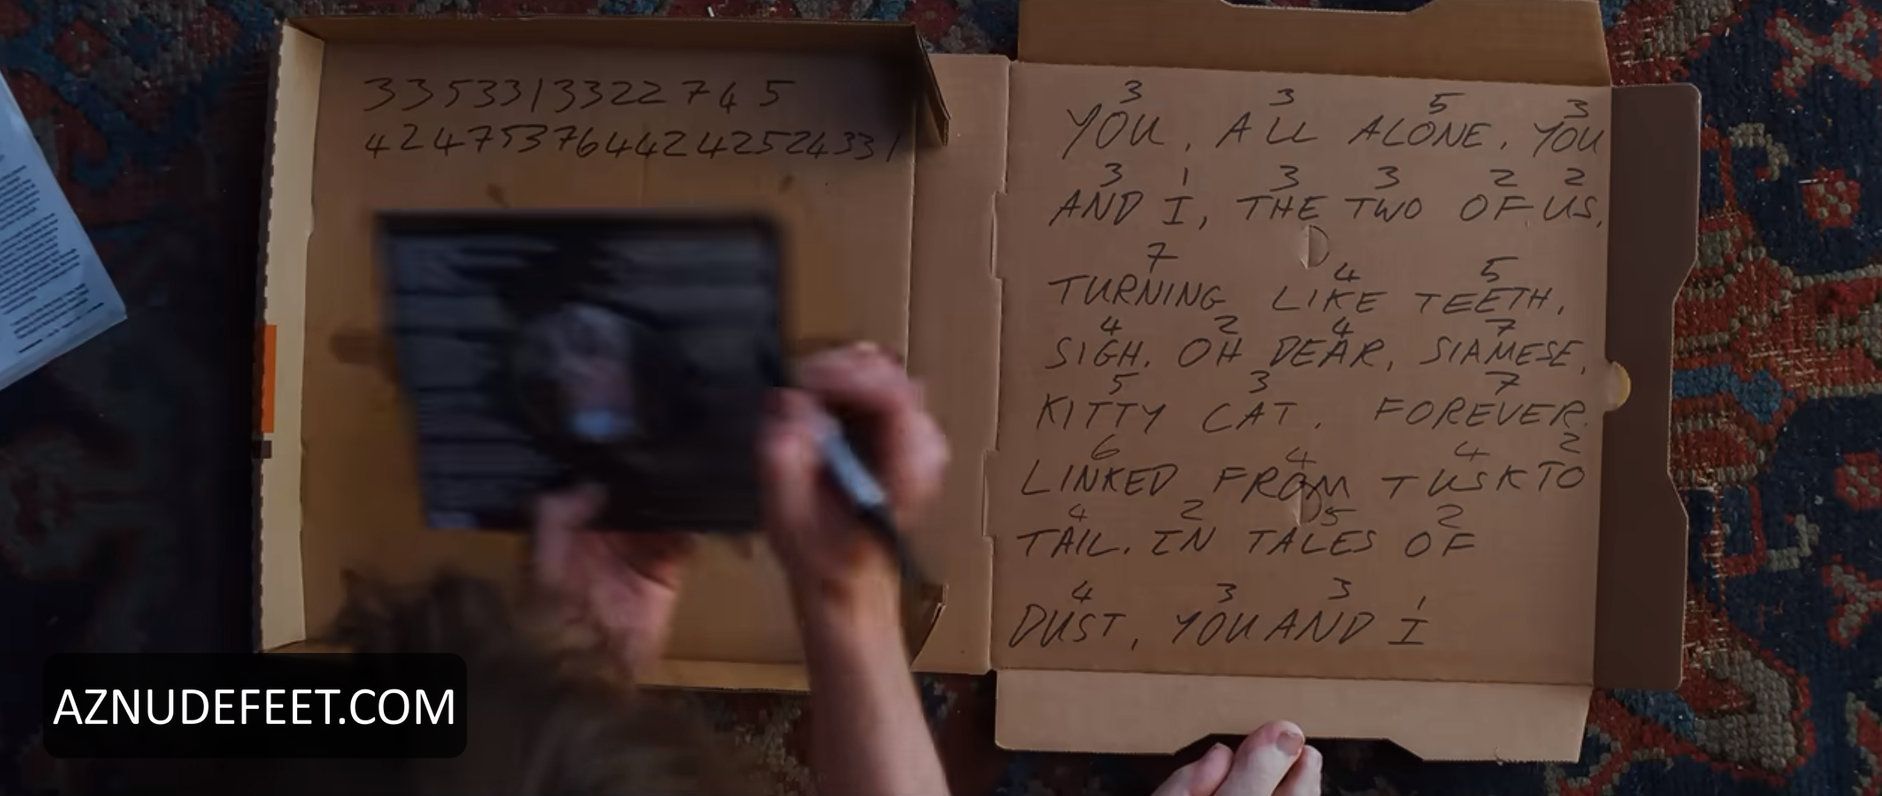 33533133227 4 5
4247537644242524331
3 3 5 3
YOU, ALL ALONE, YOU
3 1 3 3 2 2
AND I, THE TWO OF US,
7 4 5
TURNING LIKE TEETH,
4 2 4 7
SIGH, OH DEAR, SIAMESE,
5 3 7
KITTY CAT, FOREVER,
6 4 4 2
LINKED FROM TUSK TO
4 2 5 2
TAIL, IN TALES OF
4 3 3 1
DUST, YOU AND I
AZNUDEFEET.COM